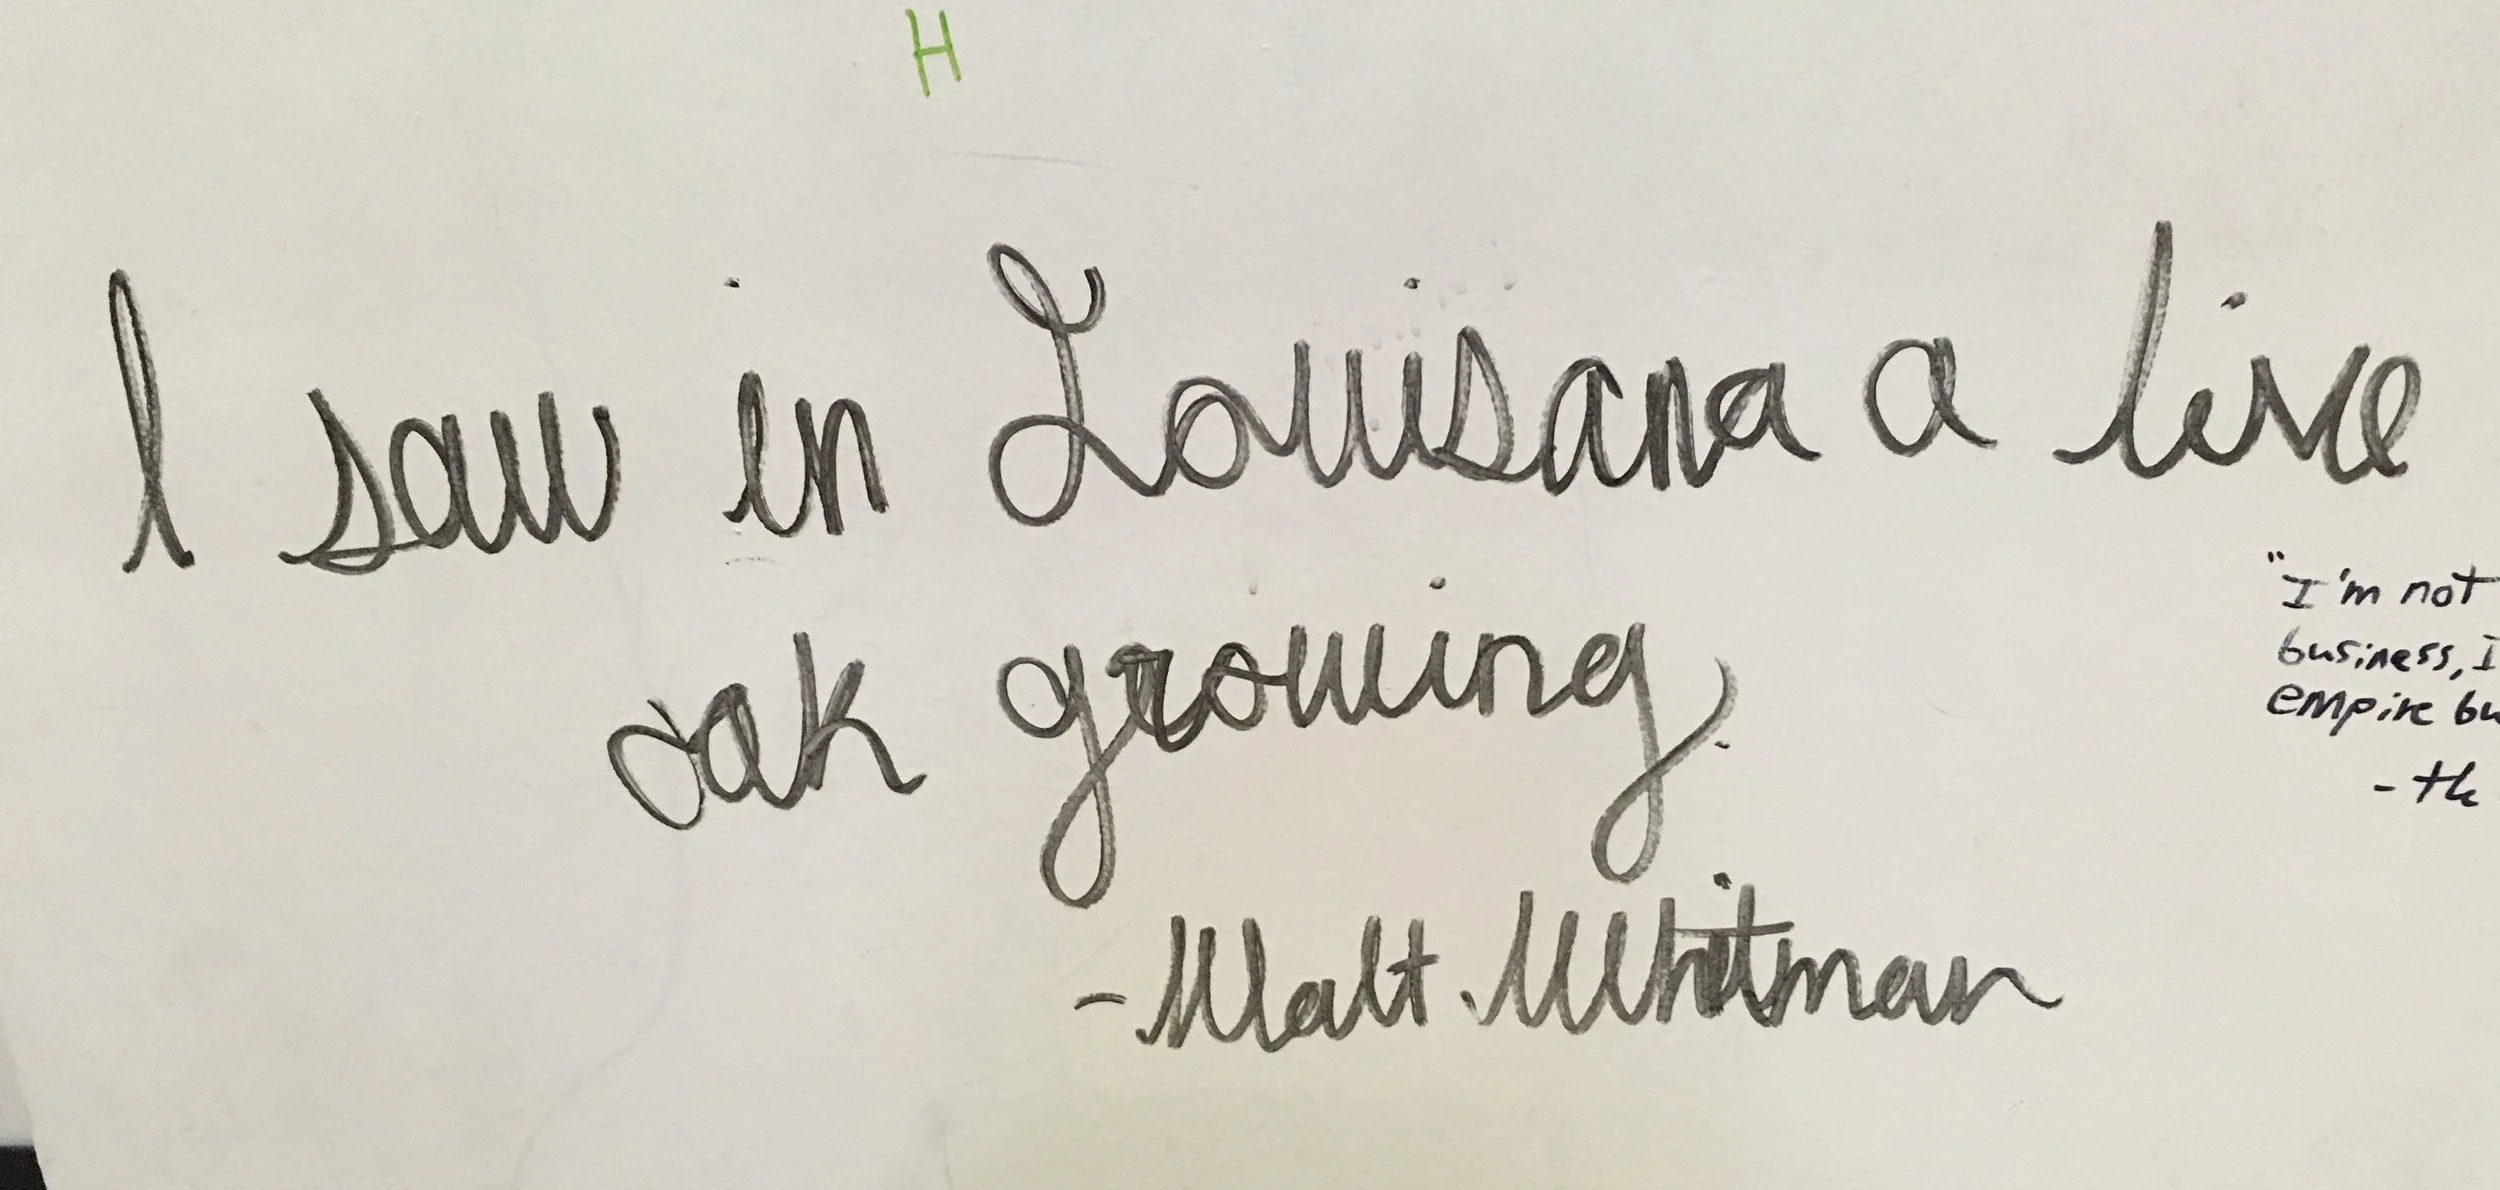 H
I saw in Louisana a live
oak growing.
-Walt Whitman
"I'm not
business, I
empire bu
- the